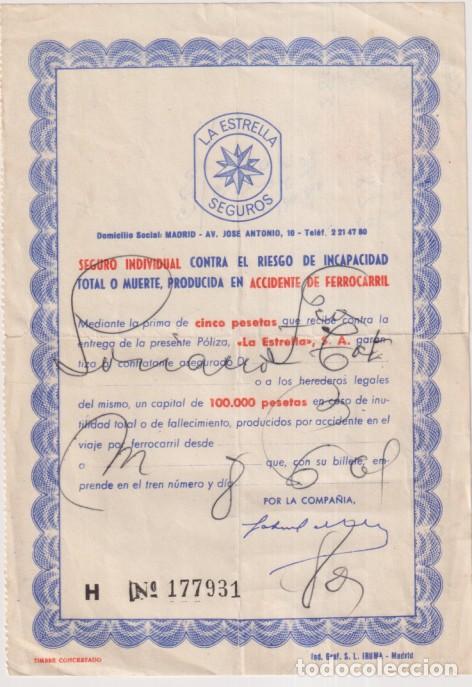 LA ESTRELLA
SEGUROS
Domicilio Social: MADRID - AV. JOSE ANTONIO, 10 - Teléf. 2 21 47 80
SEGURO INDIVIDUAL CONTRA EL RIESGO DE INCAPACIDAD
TOTAL O MUERTE, PRODUCIDA EN ACCIDENTE DE FERROCARRIL
Mediante la prima de cinco pesetas que recibe contra la
entrega de la presente Póliza, «La Estrella», S. A. garan-
tiza al contratante asegurado D.
o a los herederos legales
del mismo, un capital de 100.000 pesetas en caso de inu-
tilidad total o de fallecimiento, producidos por accidente en el
viaje por ferrocarril desde
a que, con su billete, em-
prende en el tren número y día
POR LA COMPAÑIA,
H Nº 177931
TIMBRE CONCERTADO
Ind. Graf. S. L. IRUMA - Madrid
todocoleccion